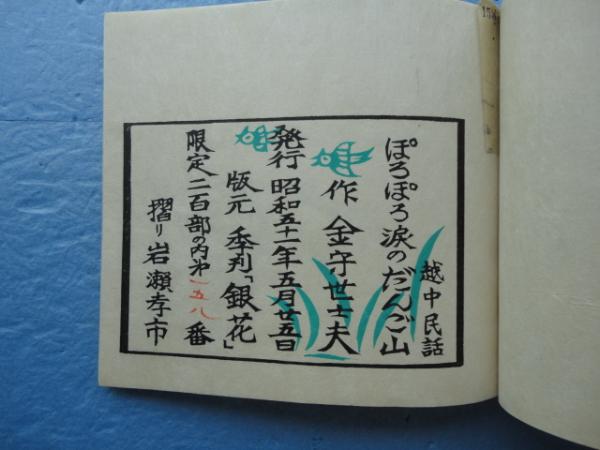 越中民話
ぽろぽろ涙のだんご山
作 金守世士夫
発行 昭和五十一年五月廿五日
版元 季刊「銀花」
限定二百部の内第一五八番
摺り 岩瀬孝市